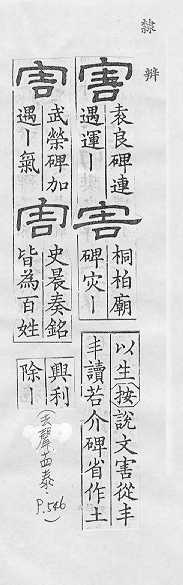 隸辨
害
袁良碑連
遇運ー
害
桐柏廟
碑灾ー
以生按說文害從丯
丯讀若介碑省作土
害
武榮碑加
遇ー氣
害
史晨奏銘
皆為百姓
興利
除ー
(去聲十四泰.
P.546)